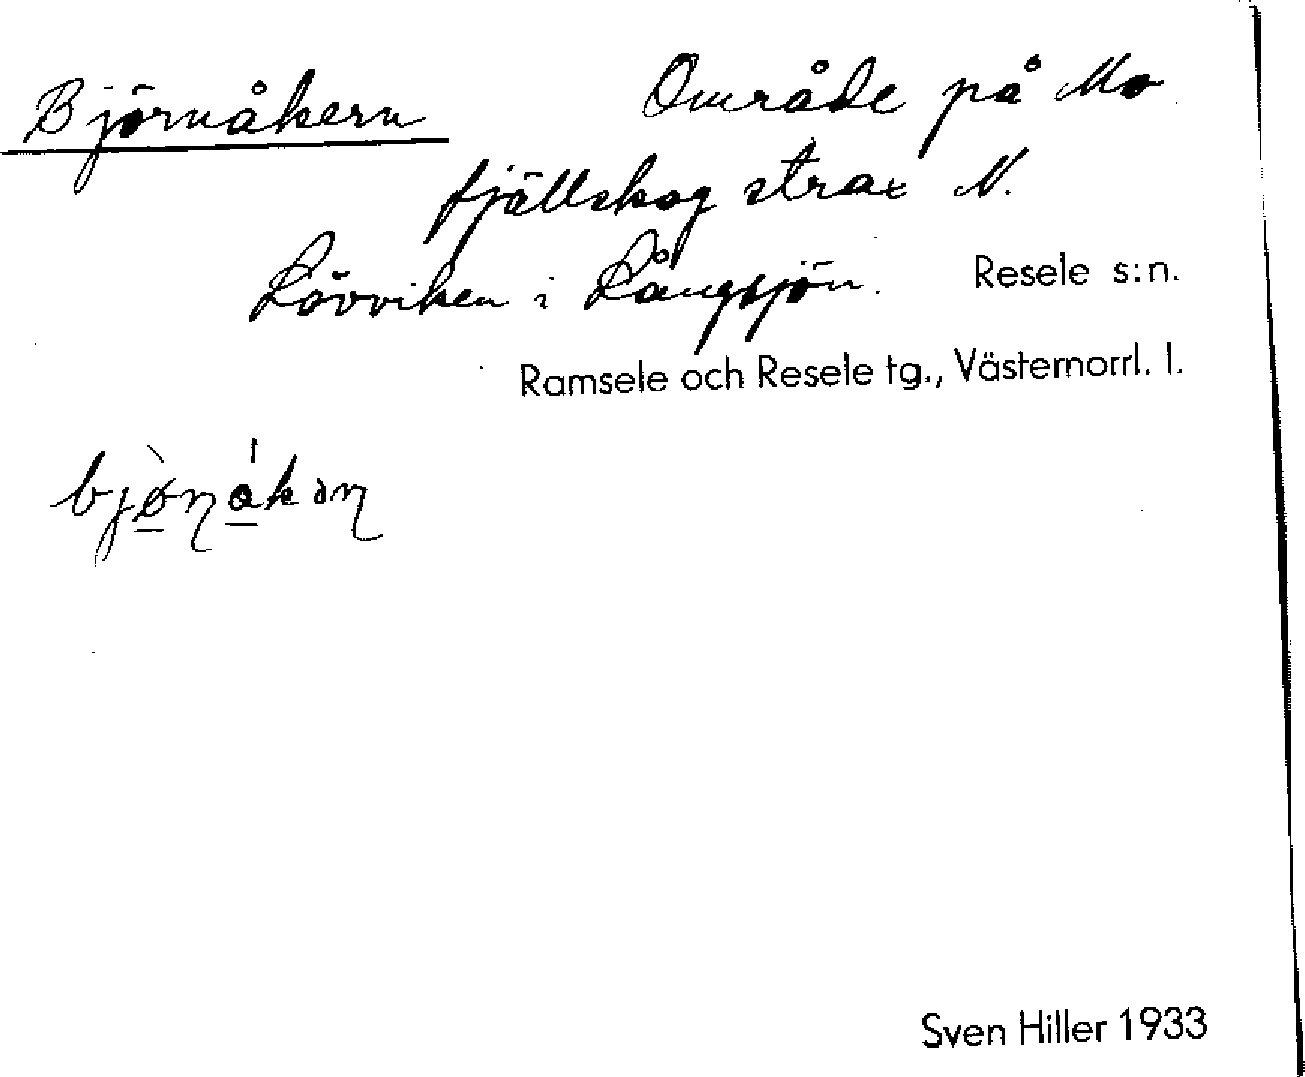 Björnåkern Område på Mo
fjällskog strax N.
Lövviken i Långsjön. Resele s:n.
Ramsele och Resele tg., Västernorrl. l.
bjø̀ɳákəɳ
Sven Hiller 1933